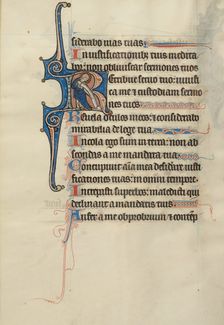 siderabo uias tuas
In iustificationibz tuis medita
bor: non obliuiscar sermones tuos
Retribue seruo tuo: uiui
fica me et custodiam sermo
nes tuos
Reuela oculos meos: et considerabo
mirabilia de lege tua
Incola ego sum in terra: non ab
scondas a me mandata tua
Concupiuit anima mea desiderare iusti
ficationes tuas: in omni tempore
Increpasti superbos: maledicti qui
declinant a mandatis tuis
Aufer a me obprobrium et contep